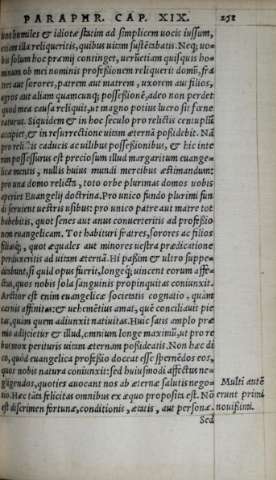 PARAPHR. CAP. XIX. 252
uni humiles & idiotæ statim ad simplicem uocis iussum,
etiam illa reliqueritis, quibus uitam sustētabatis. Neq; uo-
bis solum hoc præmij continget, uerūetiam quisquis ho-
minum ob mei nominis professionem reliquerit domū, fra
tres aut sorores, patrem aut matrem, uxorem aut filios,
agros aut aliam quamcunq; possessionē, adeo non perdet
quod mea causa reliquit, ut magno potius lucro sit fœne
raturus. Siquidem & in hoc seculo pro relictis centuplū
accipiet, & in resurrectione uitam æternā possidebit. Nā
pro relictis caducis ac uilibus possessionibus, & hic inte
rim possessurus est preciosum illud margaritum euange-
licæ mentis, nullis huius mundi mercibus æstimandum:
pro una domo relicta, toto orbe plurimas domos uobis
aperiet Euangelij doctrina. Pro unico fundo plurimi fun
di seruient uestris usibus: pro unico patre aut matre tot
habebitis, quot senes aut anus conuerteritis ad professio
nem euangelicam. Tot habituri fratres, sorores ac filios
filiasq;, quot æquales aut minores uestra prædicatione
perduxeritis ad uitam æternā. Hi passim & ultro suppe-
ditabunt, si quid opus fuerit, longeq; uincent eorum affe-
ctus, quos nobis sola sanguinis propinquitas coniunxit.
Arctior est enim euangelicæ societatis cognatio, quàm
carnis affinitas: & uehemētius amat, quē conciliauit pie
tas, quàm quem adiunxit natiuitas. Huic satis amplo præ
mio adijcietur & illud, omnium longe maximū, ut pro re
bus mox perituris uitam æternam possideatis. Non hæc di
co, quòd euangelica professio doceat esse spernēdos eos,
quos nobis natura coniunxit: sed huiusmodi affectus ne-
gligendos, quoties auocant nos ab æternæ salutis nego-
tio. Hæc tāta felicitas omnibus ex æquo proposita est. Nō
est discrimen fortunæ, conditionis, ætatis, aut personæ.
Sed
Multi autē
erunt primi
nouissimi.